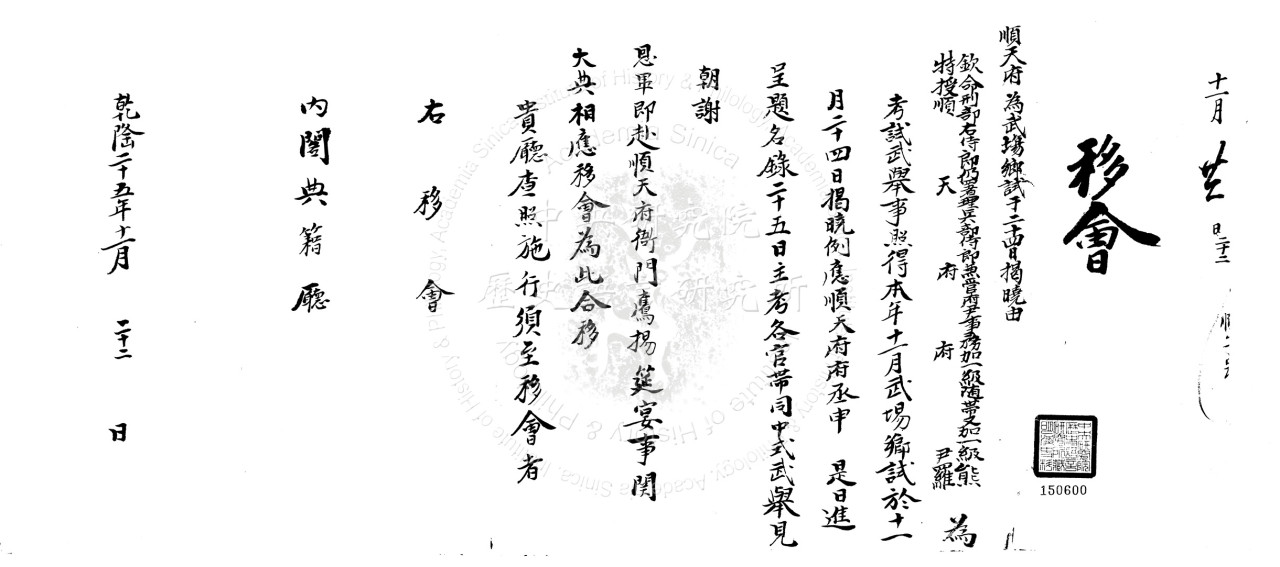 十一月 廿 日二十二
移會
順天府 為武場鄉試于二十四日揭曉由
欽命刑部右侍郎仍署理兵部侍郎兼管府尹事務加一級隨帶又加一級熊
特授順 天 府 府 尹羅 為
考試武舉事照得本年十一月武場鄉試於十一
月二十四日揭曉例應順天府府丞申 是日進
呈題名錄二十五日主考各官帶同中式武舉見
朝謝
恩畢即赴順天府衙門鷹揚筵宴事関
大典相應移會為此合移
貴廳查照施行須至移會者
右 移 會
内閣典籍廳
乾隆二十五年十一月 二十二 日
150600
中央研究院
歷史語言研究所
Institute of History & Philology, Academia Sinica